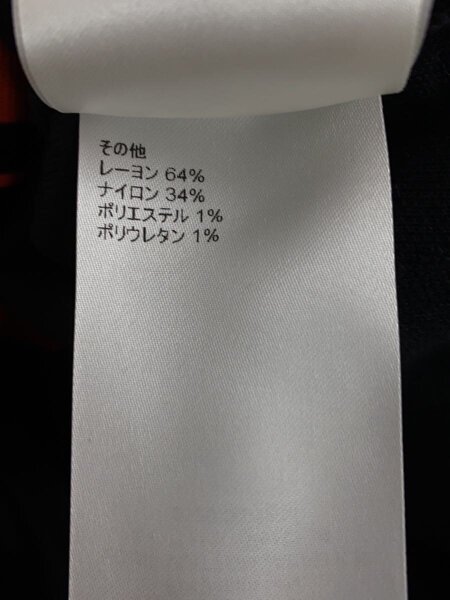 その他
レーヨン 64%
ナイロン 34%
ポリエステル 1%
ポリウレタン 1%